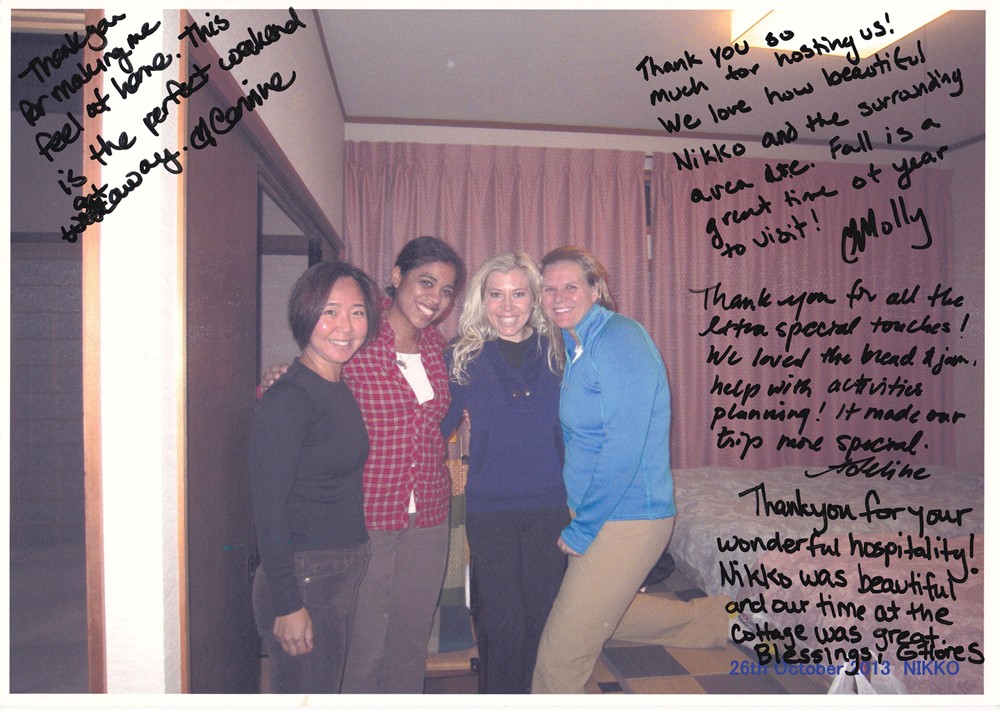 Thank you
for making me
feel at home. This
is the perfect weekend
get
away. Corinne
Thank you so
much for hosting us!
We love how beautiful
Nikko and the surrounding
area are. Fall is a
great time of year
to visit! Molly
Thank you for all the
extra special touches!
We loved the bread & jam,
help with activities
planning! It made our
trip more special.
Adeline
Thankyou for your
wonderful hospitality!
Nikko was beautiful
and our time at the
Cottage was great.
Blessings,
26th October 2013 NIKKO